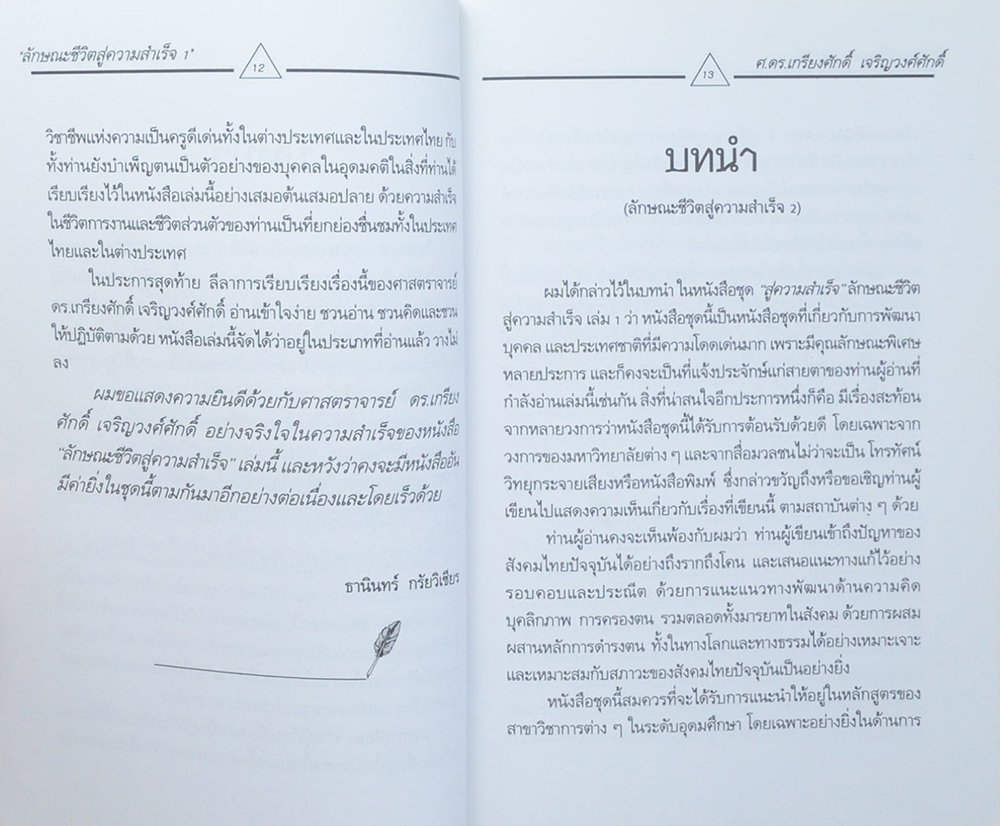 "ลักษณะชีวิตสู่ความสำเร็จ 1"
12
วิชาชีพแห่งความเป็นครูดีเด่นทั้งในต่างประเทศและในประเทศไทย กับ
ทั้งท่านยังบำเพ็ญตนเป็นตัวอย่างของบุคคลในอุดมคติในสิ่งที่ท่านได้
เรียบเรียงไว้ในหนังสือเล่มนี้อย่างเสมอต้นเสมอปลาย ด้วยความสำเร็จ
ในชีวิตการงานและชีวิตส่วนตัวของท่านเป็นที่ยกย่องชื่นชมทั้งในประเทศ
ไทยและในต่างประเทศ
ในประการสุดท้าย ลีลาการเรียบเรียงเรื่องนี้ของศาสตราจารย์
ดร.เกรียงศักดิ์ เจริญวงศ์ศักดิ์ อ่านเข้าใจง่าย ชวนอ่าน ชวนคิดและชวน
ให้ปฏิบัติตามด้วย หนังสือเล่มนี้จัดได้ว่าอยู่ในประเภทที่อ่านแล้ว วางไม่
ลง
ผมขอแสดงความยินดีด้วยกับศาสตราจารย์ ดร.เกรียง
ศักดิ์ เจริญวงศ์ศักดิ์ อย่างจริงใจในความสำเร็จของหนังสือ
"ลักษณะชีวิตสู่ความสำเร็จ" เล่มนี้ และหวังว่าคงจะมีหนังสืออัน
มีค่ายิ่งในชุดนี้ตามกันมาอีกอย่างต่อเนื่องและโดยเร็วด้วย
ธานินทร์ กรัยวิเชียร
13
ศ.ดร.เกรียงศักดิ์ เจริญวงศ์ศักดิ์
บทนำ
(ลักษณะชีวิตสู่ความสำเร็จ 2)
ผมได้กล่าวไว้ในบทนำ ในหนังสือชุด "สู่ความสำเร็จ" ลักษณะชีวิต
สู่ความสำเร็จ เล่ม 1 ว่า หนังสือชุดนี้เป็นหนังสือชุดที่เกี่ยวกับการพัฒนา
บุคคล และประเทศชาติที่มีความโดดเด่นมาก เพราะมีคุณลักษณะพิเศษ
หลายประการ และก็คงจะเป็นที่แจ้งประจักษ์แก่สายตาของท่านผู้อ่านที่
กำลังอ่านเล่มนี้เช่นกัน สิ่งที่น่าสนใจอีกประการหนึ่งก็คือ มีเรื่องสะท้อน
จากหลายวงการว่าหนังสือชุดนี้ได้รับการต้อนรับด้วยดี โดยเฉพาะจาก
วงการของมหาวิทยาลัยต่าง ๆ และจากสื่อมวลชนไม่ว่าจะเป็น โทรทัศน์
วิทยุกระจายเสียงหรือหนังสือพิมพ์ ซึ่งกล่าวขวัญถึงหรือขอเชิญท่านผู้
เขียนไปแสดงความเห็นเกี่ยวกับเรื่องที่เขียนนี้ ตามสถาบันต่าง ๆ ด้วย
ท่านผู้อ่านคงจะเห็นพ้องกับผมว่า ท่านผู้เขียนเข้าถึงปัญหาของ
สังคมไทยปัจจุบันได้อย่างถึงรากถึงโคน และเสนอแนะทางแก้ไว้อย่าง
รอบคอบและประณีต ด้วยการแนะแนวทางพัฒนาด้านความคิด
บุคลิกภาพ การครองตน รวมตลอดทั้งมารยาทในสังคม ด้วยการผสม
ผสานหลักการดำรงตน ทั้งในทางโลกและทางธรรมได้อย่างเหมาะเจาะ
และเหมาะสมกับสภาวะของสังคมไทยปัจจุบันเป็นอย่างยิ่ง
หนังสือชุดนี้สมควรที่จะได้รับการแนะนำให้อยู่ในหลักสูตรของ
สาขาวิชาการต่าง ๆ ในระดับอุดมศึกษา โดยเฉพาะอย่างยิ่งในด้านการ